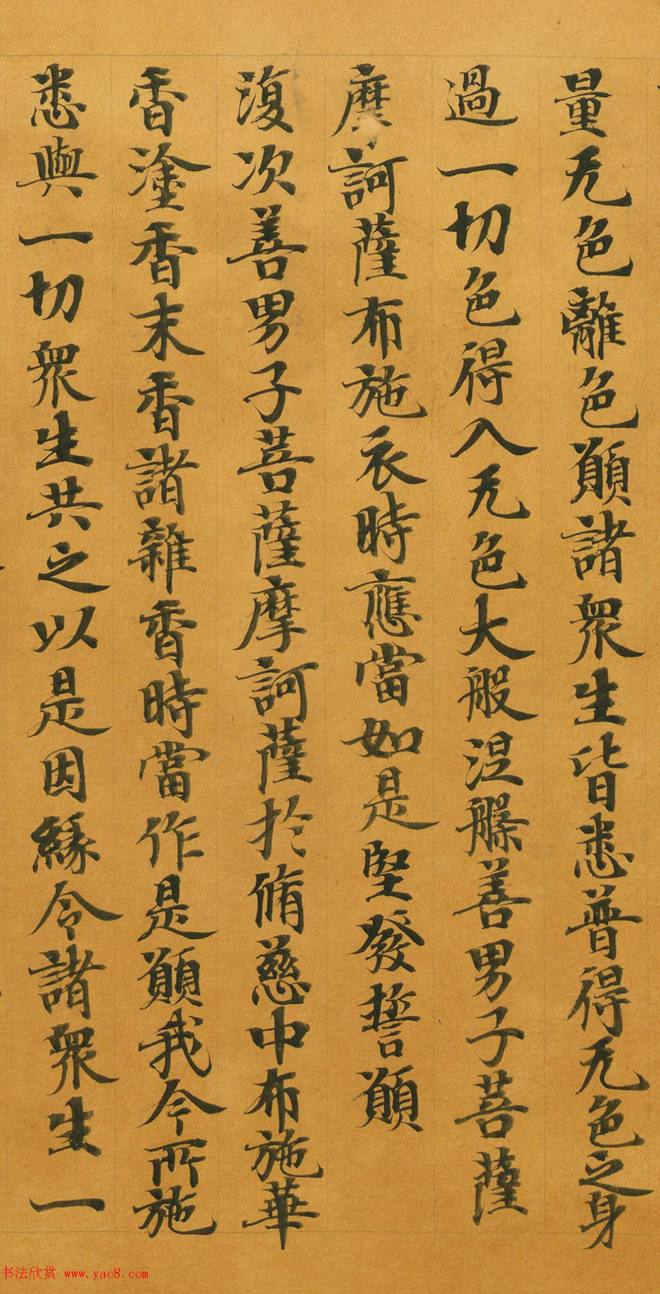 量无色離色願諸衆生皆悉普得无色之身
過一切色得入无色大般涅槃善男子菩薩
摩訶薩布施衣時應當如是堅發誓願
復次善男子菩薩摩訶薩於脩慈中布施華
香塗香末香諸雜香時當作是願我今所施
悉與一切衆生共之以是因緣令諸衆生一
书法欣赏 www.yac8.com